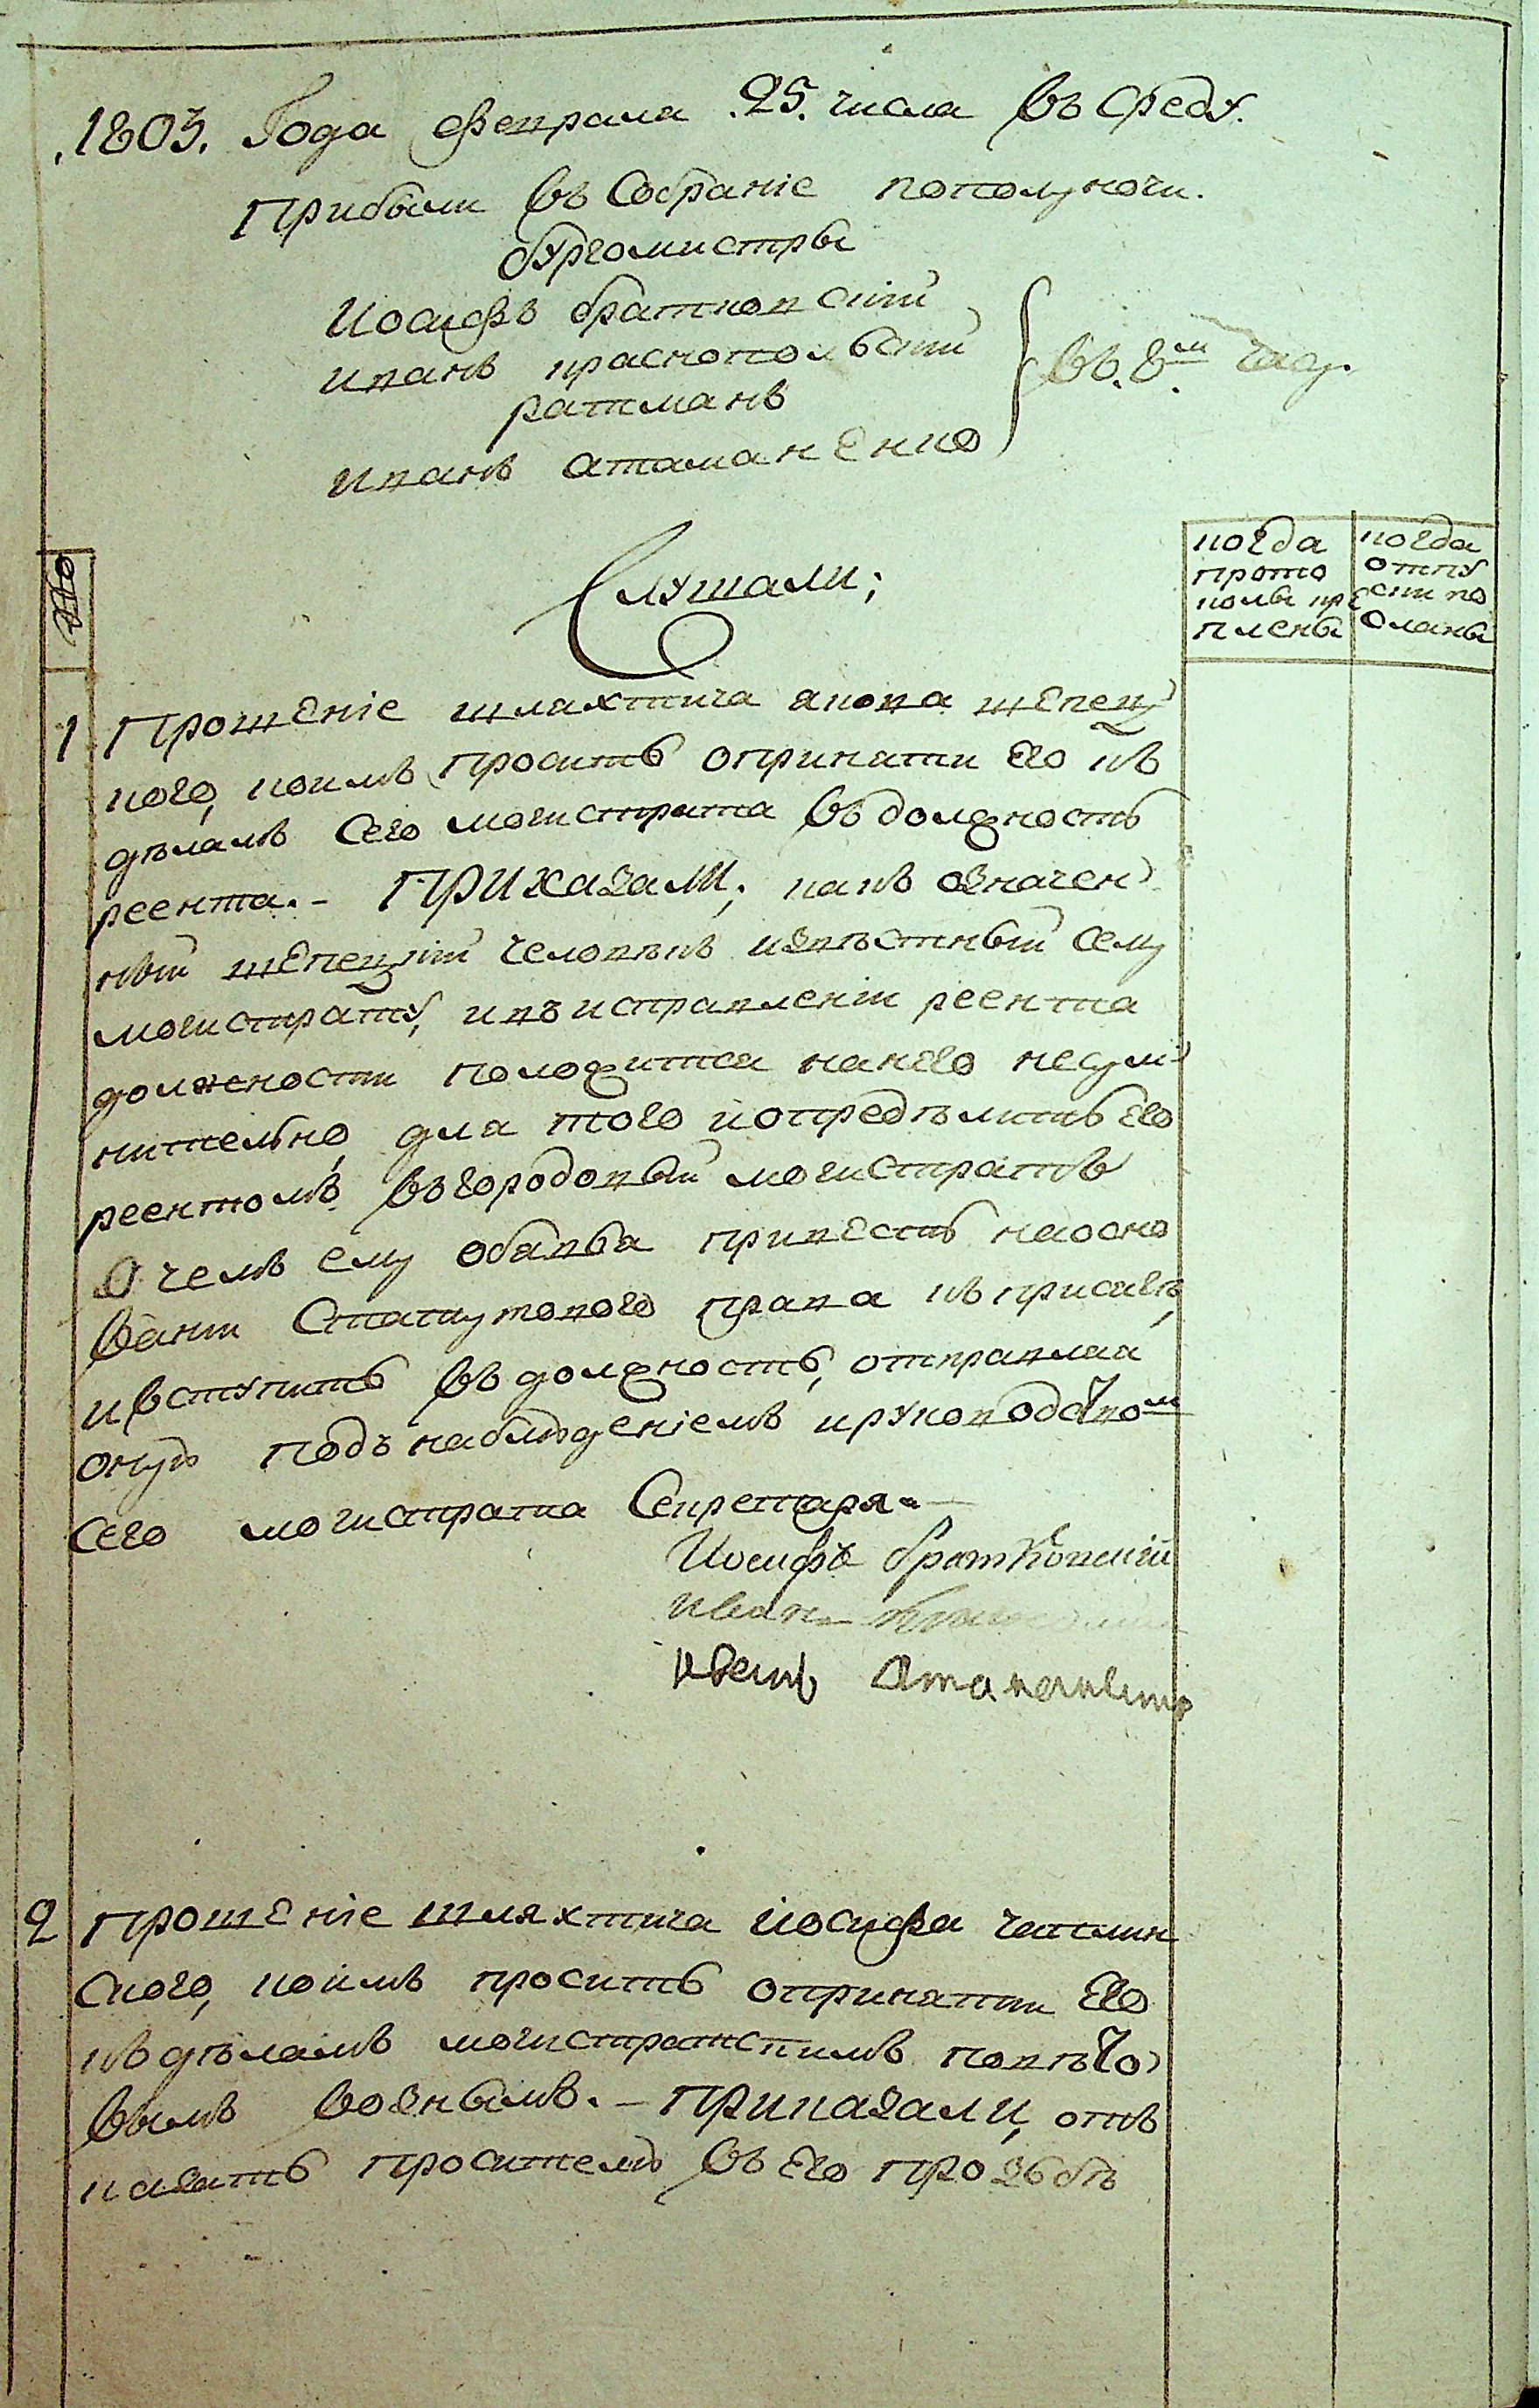 .1803. Года февраля .25. числа въ среду.
Прибыли въ собраніе пополуночи.
бургомистры
Иосифъ братковскій
иванъ краснопольскій
} въ .8.м часу.
ратманъ
иванъ атаманенко
Слушали;
когда прото колы кре плены
когда отпу ски по сланы
1 Прошеніе шляхтича якова щепец
кого, коимъ проситъ опринятіи его къ
дѣламъ сего магистрата въ должность
реента. - Приказали; какъ означен
ный щепецкій человѣкъ извѣстный сему
магистрату, ивъ исправленіи реента
должности положится нанего несум
нительно, для того иопредѣлить его
реентомъ въ городовый магистратъ
О чемъ ему обавя привесть наосно
ваніи Статутового права къ присягѣ,
ивступить въ должность, отправляя
оную подъ наблюденіемъ ируководством
сего магистрата Секретаря. -
Иосифъ братковскій
Иван
Иванъ Атаманенко
2 Прошеніе шляхтича иосифа чатлин
ского, коимъ проситъ опринятіи его
къ дѣламъ магистратскимъ повѣто
вымъ вознымъ. - Приказали, отъ
казать просителю въ его прозьбѣ